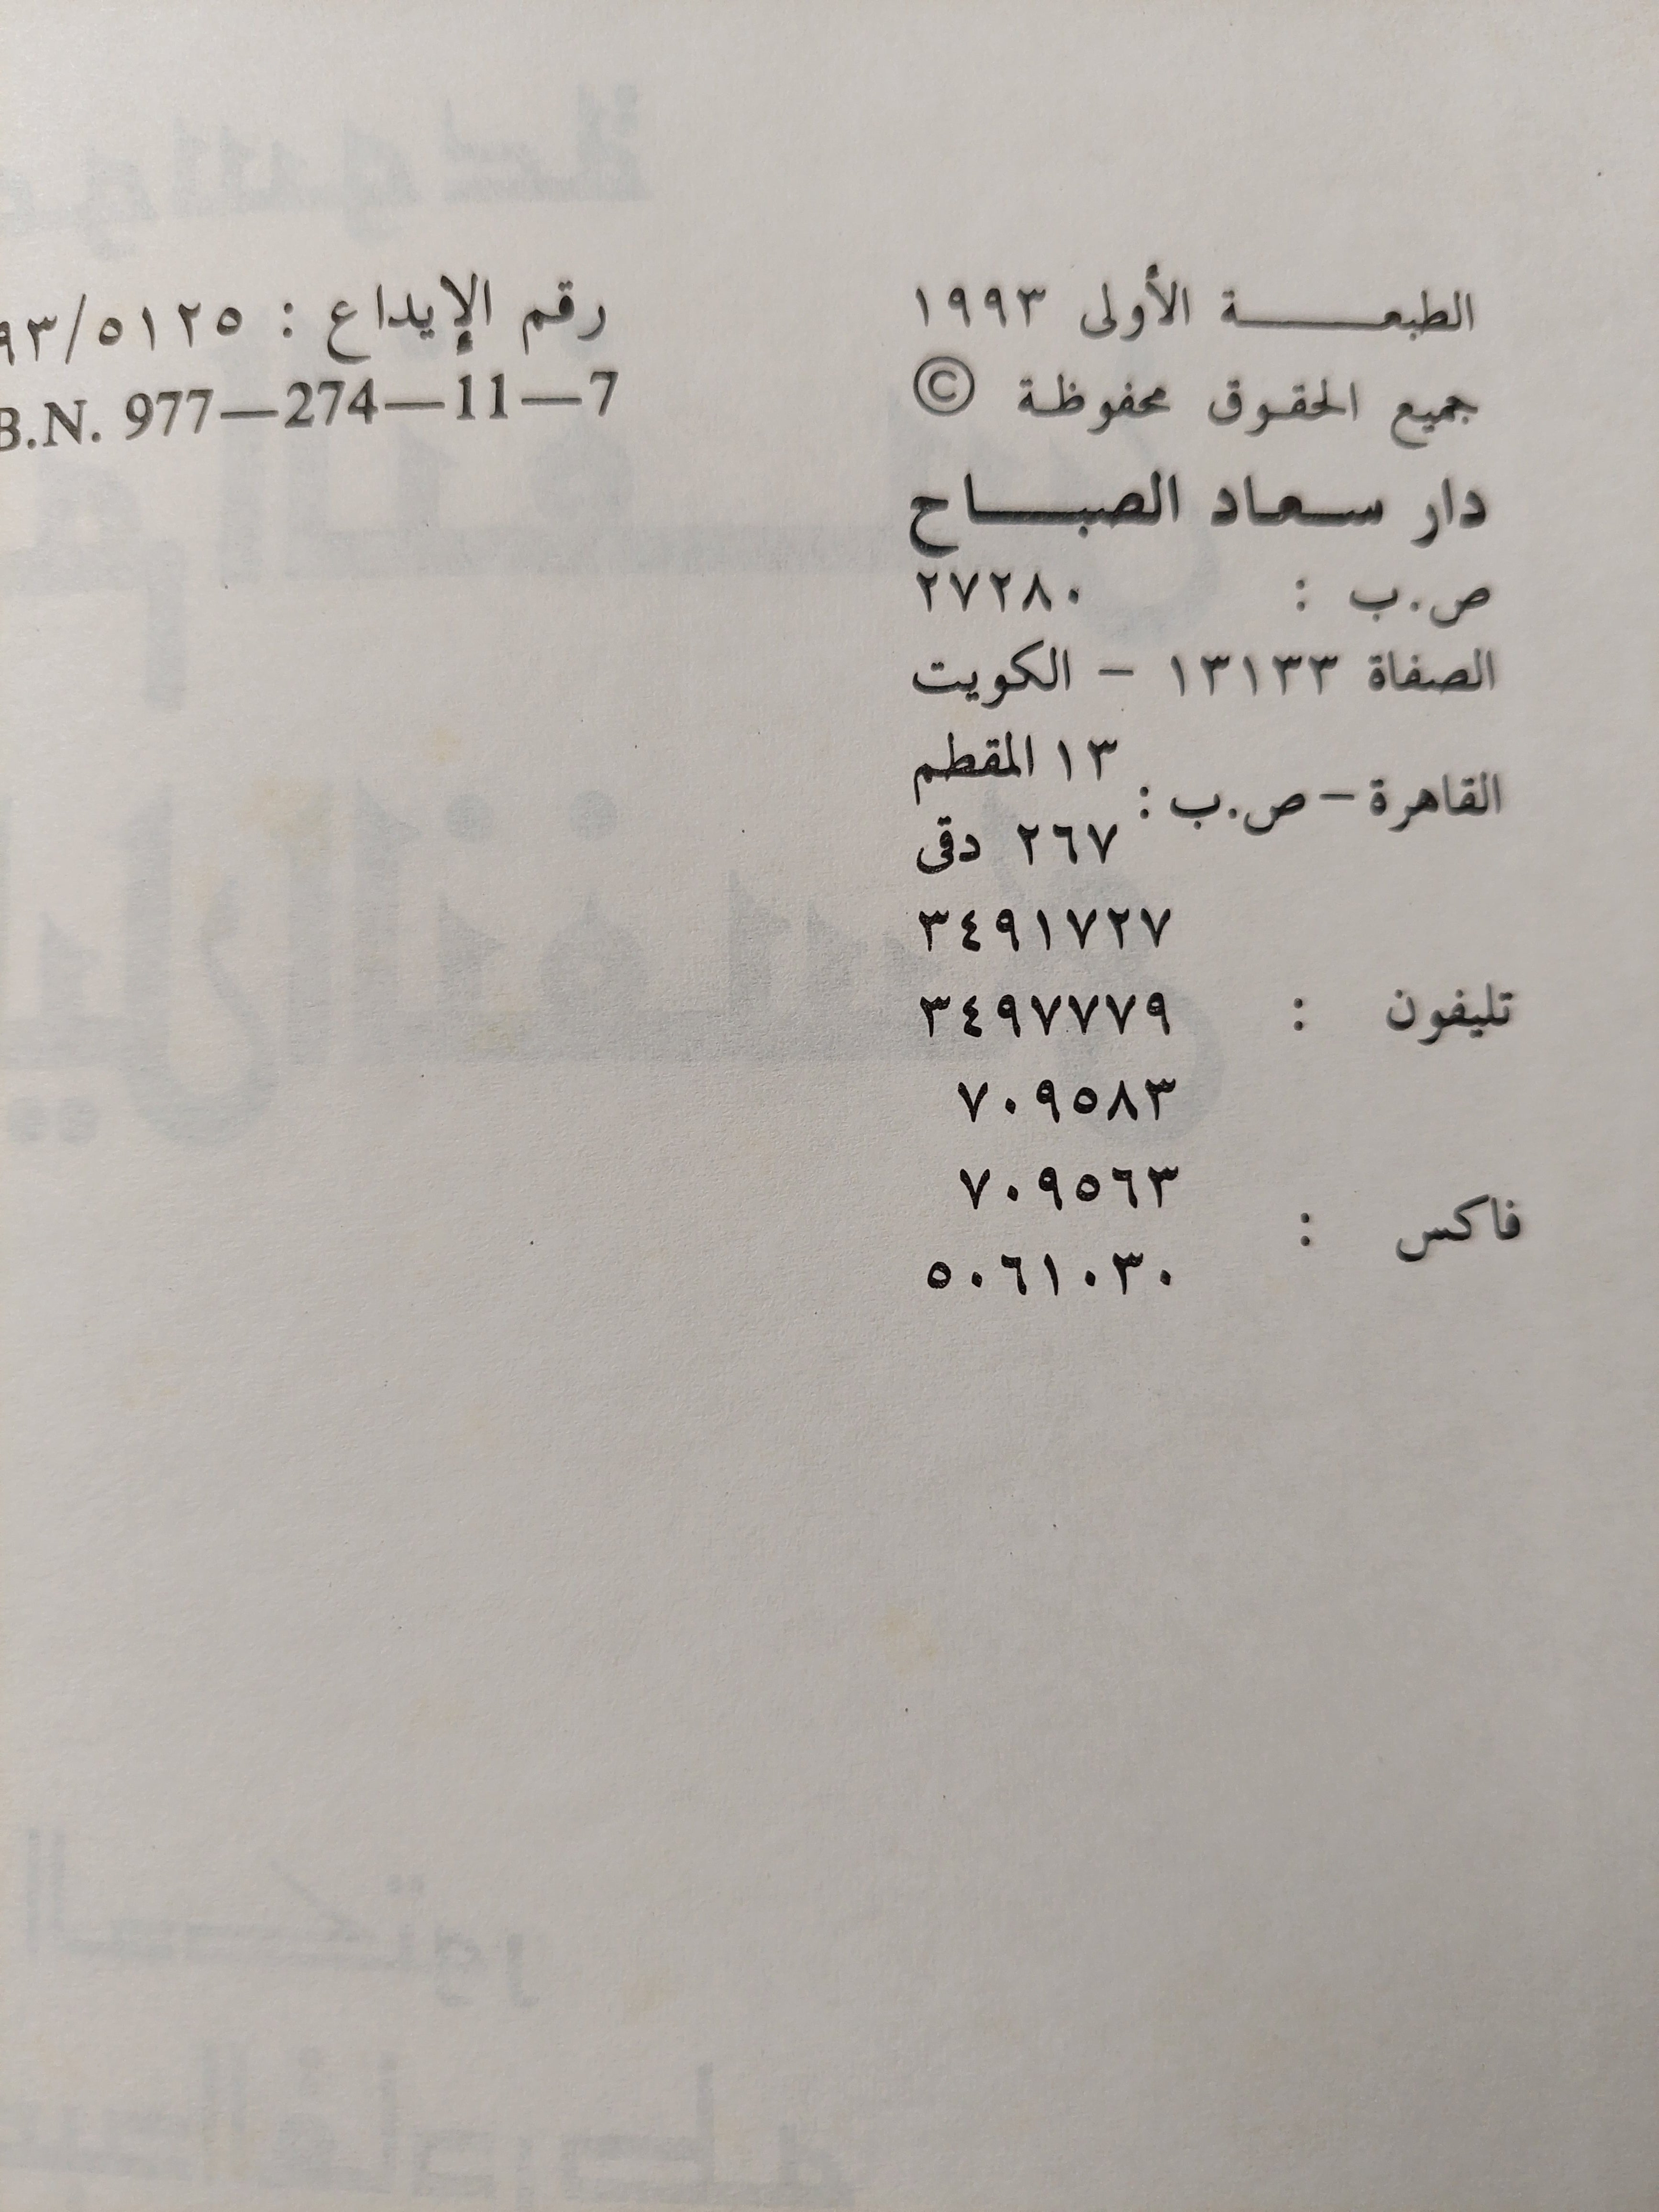 الطبعة الأولى ١٩٩٣
جميع الحقوق محفوظة ©
دار سعاد الصباح
ص.ب : ٢٧٢٨٠
الصفاة ١٣١٣٣ – الكويت
القاهرة – ص.ب : ١٣ المقطم
٢٦٧ دقى
تليفون : ٣٤٩١٧٢٧
٣٤٩٧٧٧٩
٧٠٩٥٨٣
فاكس : ٧٠٩٥٦٣
٥٠٦١٠٣٠
رقم الإيداع : ٥١٢٥/٩٣
B.N. 977—274—11—7